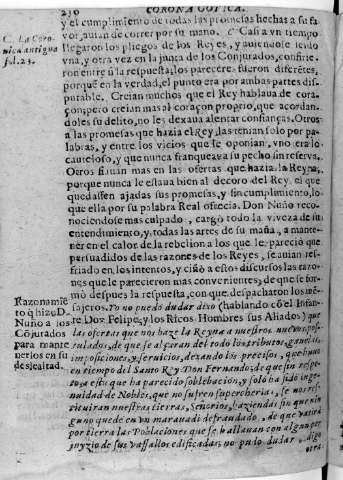 236 CORONA GOTICA.
y el cumplimiento de todas las promesas hechas a su fa-
vor, auian de correr por su mano. c Casi a vn tiempo
llegaron los pliegos de los Reyes, y auiendole leido
vna, y otra vez en la junta de los Conjurados, confirie-
ron entre si la respuesta, los pareceres fueron diferētes,
porque en la verdad, el punto era por ambas partes dis-
putable. Creian muchos que el Rey hablaua de cora-
çon, pero creian mas al coraçon proprio, que acordan-
doles su delito, no les dexaua alentar confianças. Otros
a las promesas que hazia el Rey, las tenian solo por pa-
labras, y entre los vicios que le oponian, vno era lo
cauteloso, y que nunca franqueava su pecho sin reserva.
Otros fiauan mas en las ofertas que hazia la Reyna,
porque nunca le estaua bien al decoro del Rey, el que
quedassen ajadas sus promesas, y sin cumplimiento, lo
que ella por su palabra Real ofrecia. Don Nuño reco-
nociendose mas culpado, cargò toda la viveza de su
entendimiento, y todas las artes de su maña, a mante-
ner en el calor de la rebelion a los que le pareciò que
persuadidos de las razones de los Reyes, se auian res-
friado en los intentos, y ciñò a estos discursos las razo-
nes que le parecieron mas convenientes, de que se for-
mò despues la respuesta, con que despacharon los men-
sajeros. Yo no puedo dudar dixo (hablando cō el Infan-
te Don Felipe, y los Ricos Hombres sus Aliados) que
las ofertas que nos haze la Reyna a nuestros
tulados, de que se alçaran del todo los tributos,
imposiciones, y servicios, dexando los precisos, que huuo
en tiempo del Santo Rey Don Fernando; de que sin respe-
to, a esto que ha parecido soblebacion, y solo ha sido inge-
nuidad de Nobles, que no sufren supercherias, se nos res-
tituiran nuestras tierras, Señorios, haziendas sin que nin-
guno quede en vn marauadi defraudado, de que
por tierra las Poblaciones que se hallauan con algun per-
juyzio de sus vassallos edificadas, no pudo dudar, digo
otra
C. La Coro-
nica antigua
fol. 23.
Razonamiē-
to q hizo D.
Nuño a los
Cōjurados
para mante
nerlos en su
deslealtad.